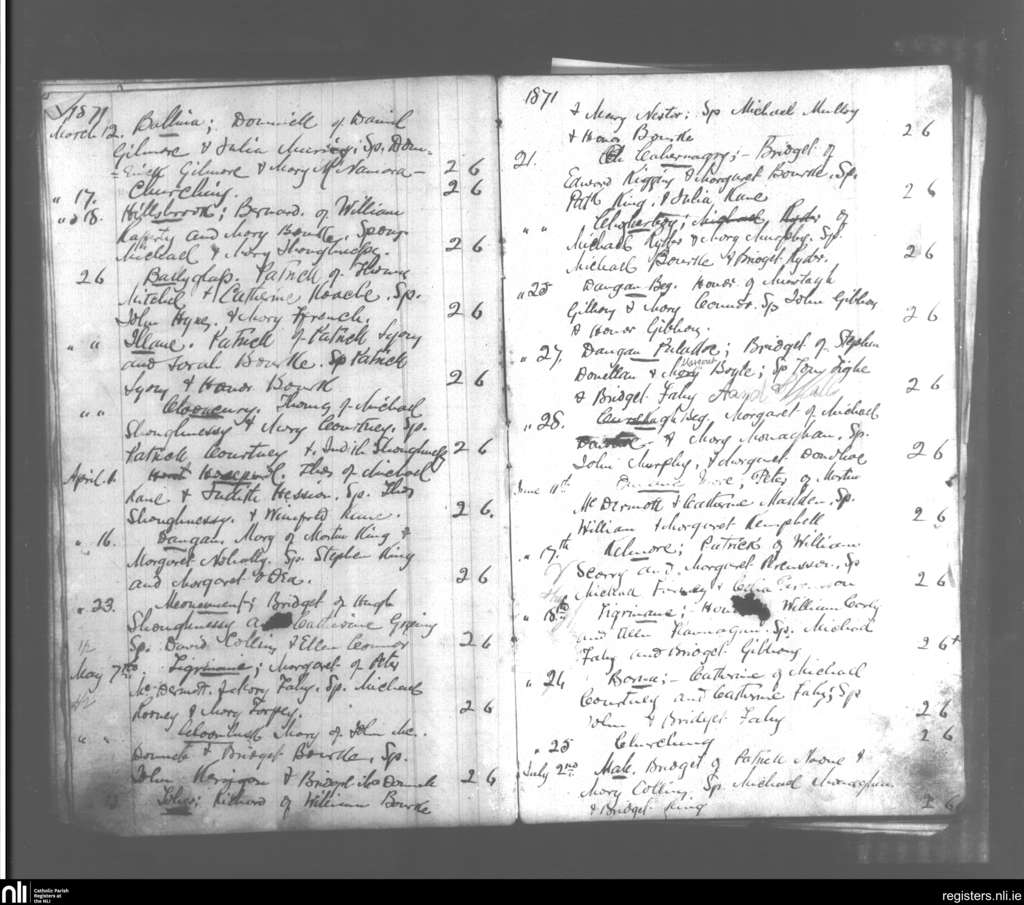 1871
March 12. Ballina; Dominick of Daniel
Gilmore & Julia ; Sp. Dom-
=inick Gilmore & Mary McNamara - 2 6
" 17. Churching. 2 6
" " 18. Hillsbrook; Bernard of William
Rafferty and Mary Bourke. Spons
Michael & Mary Shoughnessy. 2 6
26 Ballyglass. Patrick of Thomas
Mitchel & Catherine Roache. Sp.
John Hynes. & Mary French. 2 6
" " Illane. Patrick of Patrick Lyons
and Sarah Bourke. Sp Patrick
Lyons & Honor Bourk 2 6
" " Clooncurry. Thomas of Michael
Shoughnessy & Mary Courtney. Sp.
Patrick Courtney & Judith Shoughnessy 2 6
April 1. Thos of Michael
Kane & Judith Hession. Sp. Thos
Shoughnessy. & Winifred Kane. 2 6.
" 16. Dangan. Mary of Martin King &
Margaret . Sp. Stephen King
and Margaret O Dea. 2 6
" 23. ; Bridget of Hugh
Shoughnessy Catherine
Sp. David Collins & Ellen Connor 2 6
May 7th. Tigrinane; Margaret of Peter
McDermott. & Mary Fahy. Sp. Michael
Rooney & Mary . 2 6
" " . Mary of John Mc.
Donnell & Bridget Bourke. Sp.
John Kerrigan & Bridget McDonnell 2 6
; Richard of William Bourke
1871
& Mary Nestor; Sp Michael Mulloy
& Honor Bourke 2 6
21. Cahernagry; - Bridget of
Edward Higgins & Margaret Bourke. Sp.
Patk King. & Julia Kane 2 6
" " ; of
Michael & Mary Murphy. Sp.
Michael Bourke & Bridget Ryder. 2 6
" 25 Dangan Beg. Honor of Murtagh
Gibbons & Mary Connor. Sp John Gibbons
& Honor Gibbons. 2 6
" 27. Dangan ; Bridget of Stephen
Donellan & Boyle; Sp Tony Tighe
& Bridget Fahy 2 6
" 28. Beg. Margaret of Michael
& Mary Monaghan. Sp.
John Murphy. & Margaret Donohoe 2 6
June 11th Peter of Martin
McDermott & Catherine Madden. Sp.
William & Margaret Kempbell 2 6
" 17th Kilmore; Patrick of William
Scarry and Margaret . Sp
Michael 2 6
" 18th Tigrinane; William
and Ellen . Sp. Michael
Fahy and Bridget Gibbons 2 6
" 24 ; - Catherine of Michael
Courtney and Catherine Fahy; Sp
John & Bridget Fahy 2 6
" 25 Churching 2 6
July 2nd . Bridget of Patrick &
Mary Collins. Sp. Michael Monaghan
& Bridget King 2 6
nli
Catholic Parish
Registers at
the NLI
registers.nli.ie